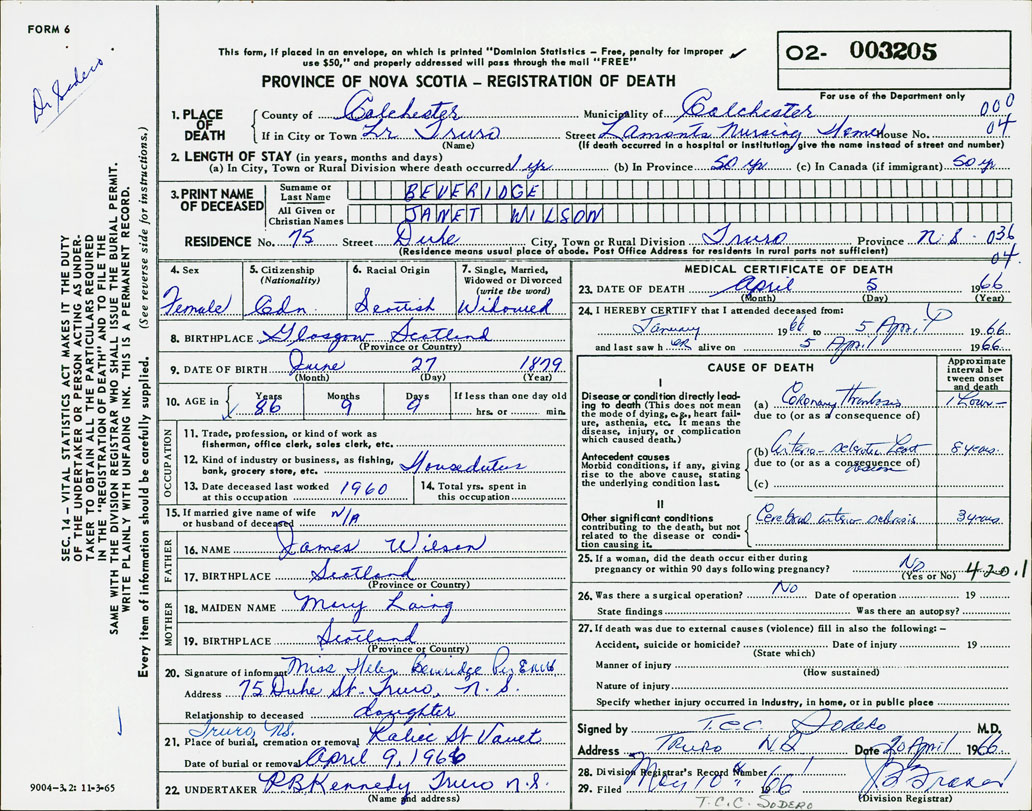 FORM 6
Dr Sodero
This form, if placed in an envelope, on which is printed "Dominion Statistics – Free, penalty for improper
use $50," and properly addressed will pass through the mail "FREE"
O2- 003205
For use of the Department only
PROVINCE OF NOVA SCOTIA – REGISTRATION OF DEATH
1. PLACE OF DEATH
County of Colchester Municipality of Colchester 000
If in City or Town Truro Street Lamonts Nursing Home House No. 04
(Name) (If death occurred in a hospital or institution, give the name instead of street and number)
2. LENGTH OF STAY (in years, months and days)
(a) In City, Town or Rural Division where death occurred 1 yr (b) In Province 50 yr (c) In Canada (if immigrant) 50 yr
3. PRINT NAME OF DECEASED
Surname or Last Name BEVERIDGE
All Given or Christian Names JANET WILSON
RESIDENCE No. 75 Street Duke City, Town or Rural Division Truro Province N.S. 036
(Residence means usual place of abode. Post Office Address for residents in rural parts not sufficient) 04
4. Sex Female
5. Citizenship (Nationality) Cdn.
6. Racial Origin Scottish
7. Single, Married, Widowed or Divorced (write the word) Widowed
8. BIRTHPLACE Glasgow Scotland
(Province or Country)
9. DATE OF BIRTH June 27 1879
(Month) (Day) (Year)
10. AGE in Years 86 Months 9 Days 9 If less than one day old
hrs. or min.
OCCUPATION
11. Trade, profession, or kind of work as
fisherman, office clerk, sales clerk, etc.
12. Kind of industry or business, as fishing,
bank, grocery store, etc. Houseduties
13. Date deceased last worked
at this occupation 1960
14. Total yrs. spent in
this occupation
15. If married give name of wife
or husband of deceased N/A
FATHER
16. NAME James Wilson
17. BIRTHPLACE Scotland
(Province or Country)
MOTHER
18. MAIDEN NAME Mary Laing
19. BIRTHPLACE Scotland
(Province or Country)
20. Signature of informant Miss Helen Beveridge
Address 75 Duke St. Truro, N.S.
Relationship to deceased daughter
Truro, N.S.
21. Place of burial, cremation or removal St
Date of burial or removal April 9, 1966
22. UNDERTAKER R.B. Kennedy Truro N.S.
(Name and address)
MEDICAL CERTIFICATE OF DEATH
23. DATE OF DEATH April 5 1966
(Month) (Day) (Year)
24. I HEREBY CERTIFY that I attended deceased from:
January 1966 to 5 April 1966
and last saw h er alive on 5 April 1966
CAUSE OF DEATH
Approximate interval between onset and death
I
Disease or condition directly leading to death (This does not mean the mode of dying, e.g., heart failure, asthenia, etc. It means the disease, injury, or complication which caused death.)
(a) Coronary thrombosis 1 hour
due to (or as a consequence of)
Antecedent causes
Morbid conditions, if any, giving rise to the above cause, stating the underlying condition last.
(b) Arterio-sclerotic heart disease 8 years
due to (or as a consequence of)
(c)
II
Other significant conditions
contributing to the death, but not related to the disease or condition causing it.
Cerebral arterio sclerosis 3 years
25. If a woman, did the death occur either during
pregnancy or within 90 days following pregnancy? No
(Yes or No) 420.1
26. Was there a surgical operation? No Date of operation 19
State findings Was there an autopsy?
27. If death was due to external causes (violence) fill in also the following: –
Accident, suicide or homicide? Date of injury 19
(State which)
Manner of injury
(How sustained)
Nature of injury
Specify whether injury occurred in Industry, in home, or in public place
Signed by T.C.C. Sodero M.D.
Address Truro NS Date 20 April 1966
28. Division Registrar's Record Number
29. Filed May 10 66
(Division Registrar)
T.C.C. SODERO
SEC. 14 – VITAL STATISTICS ACT MAKES IT THE DUTY
OF THE UNDERTAKER OR PERSON ACTING AS UNDER-
TAKER TO OBTAIN ALL THE PARTICULARS REQUIRED
IN THE "REGISTRATION OF DEATH" AND TO FILE THE
SAME WITH THE DIVISION REGISTRAR WHO SHALL ISSUE THE BURIAL PERMIT.
WRITE PLAINLY WITH UNFADING INK. THIS IS A PERMANENT RECORD.
Every item of information should be carefully supplied. (See reverse side for instructions.)
9004–3.2: 11-3-65